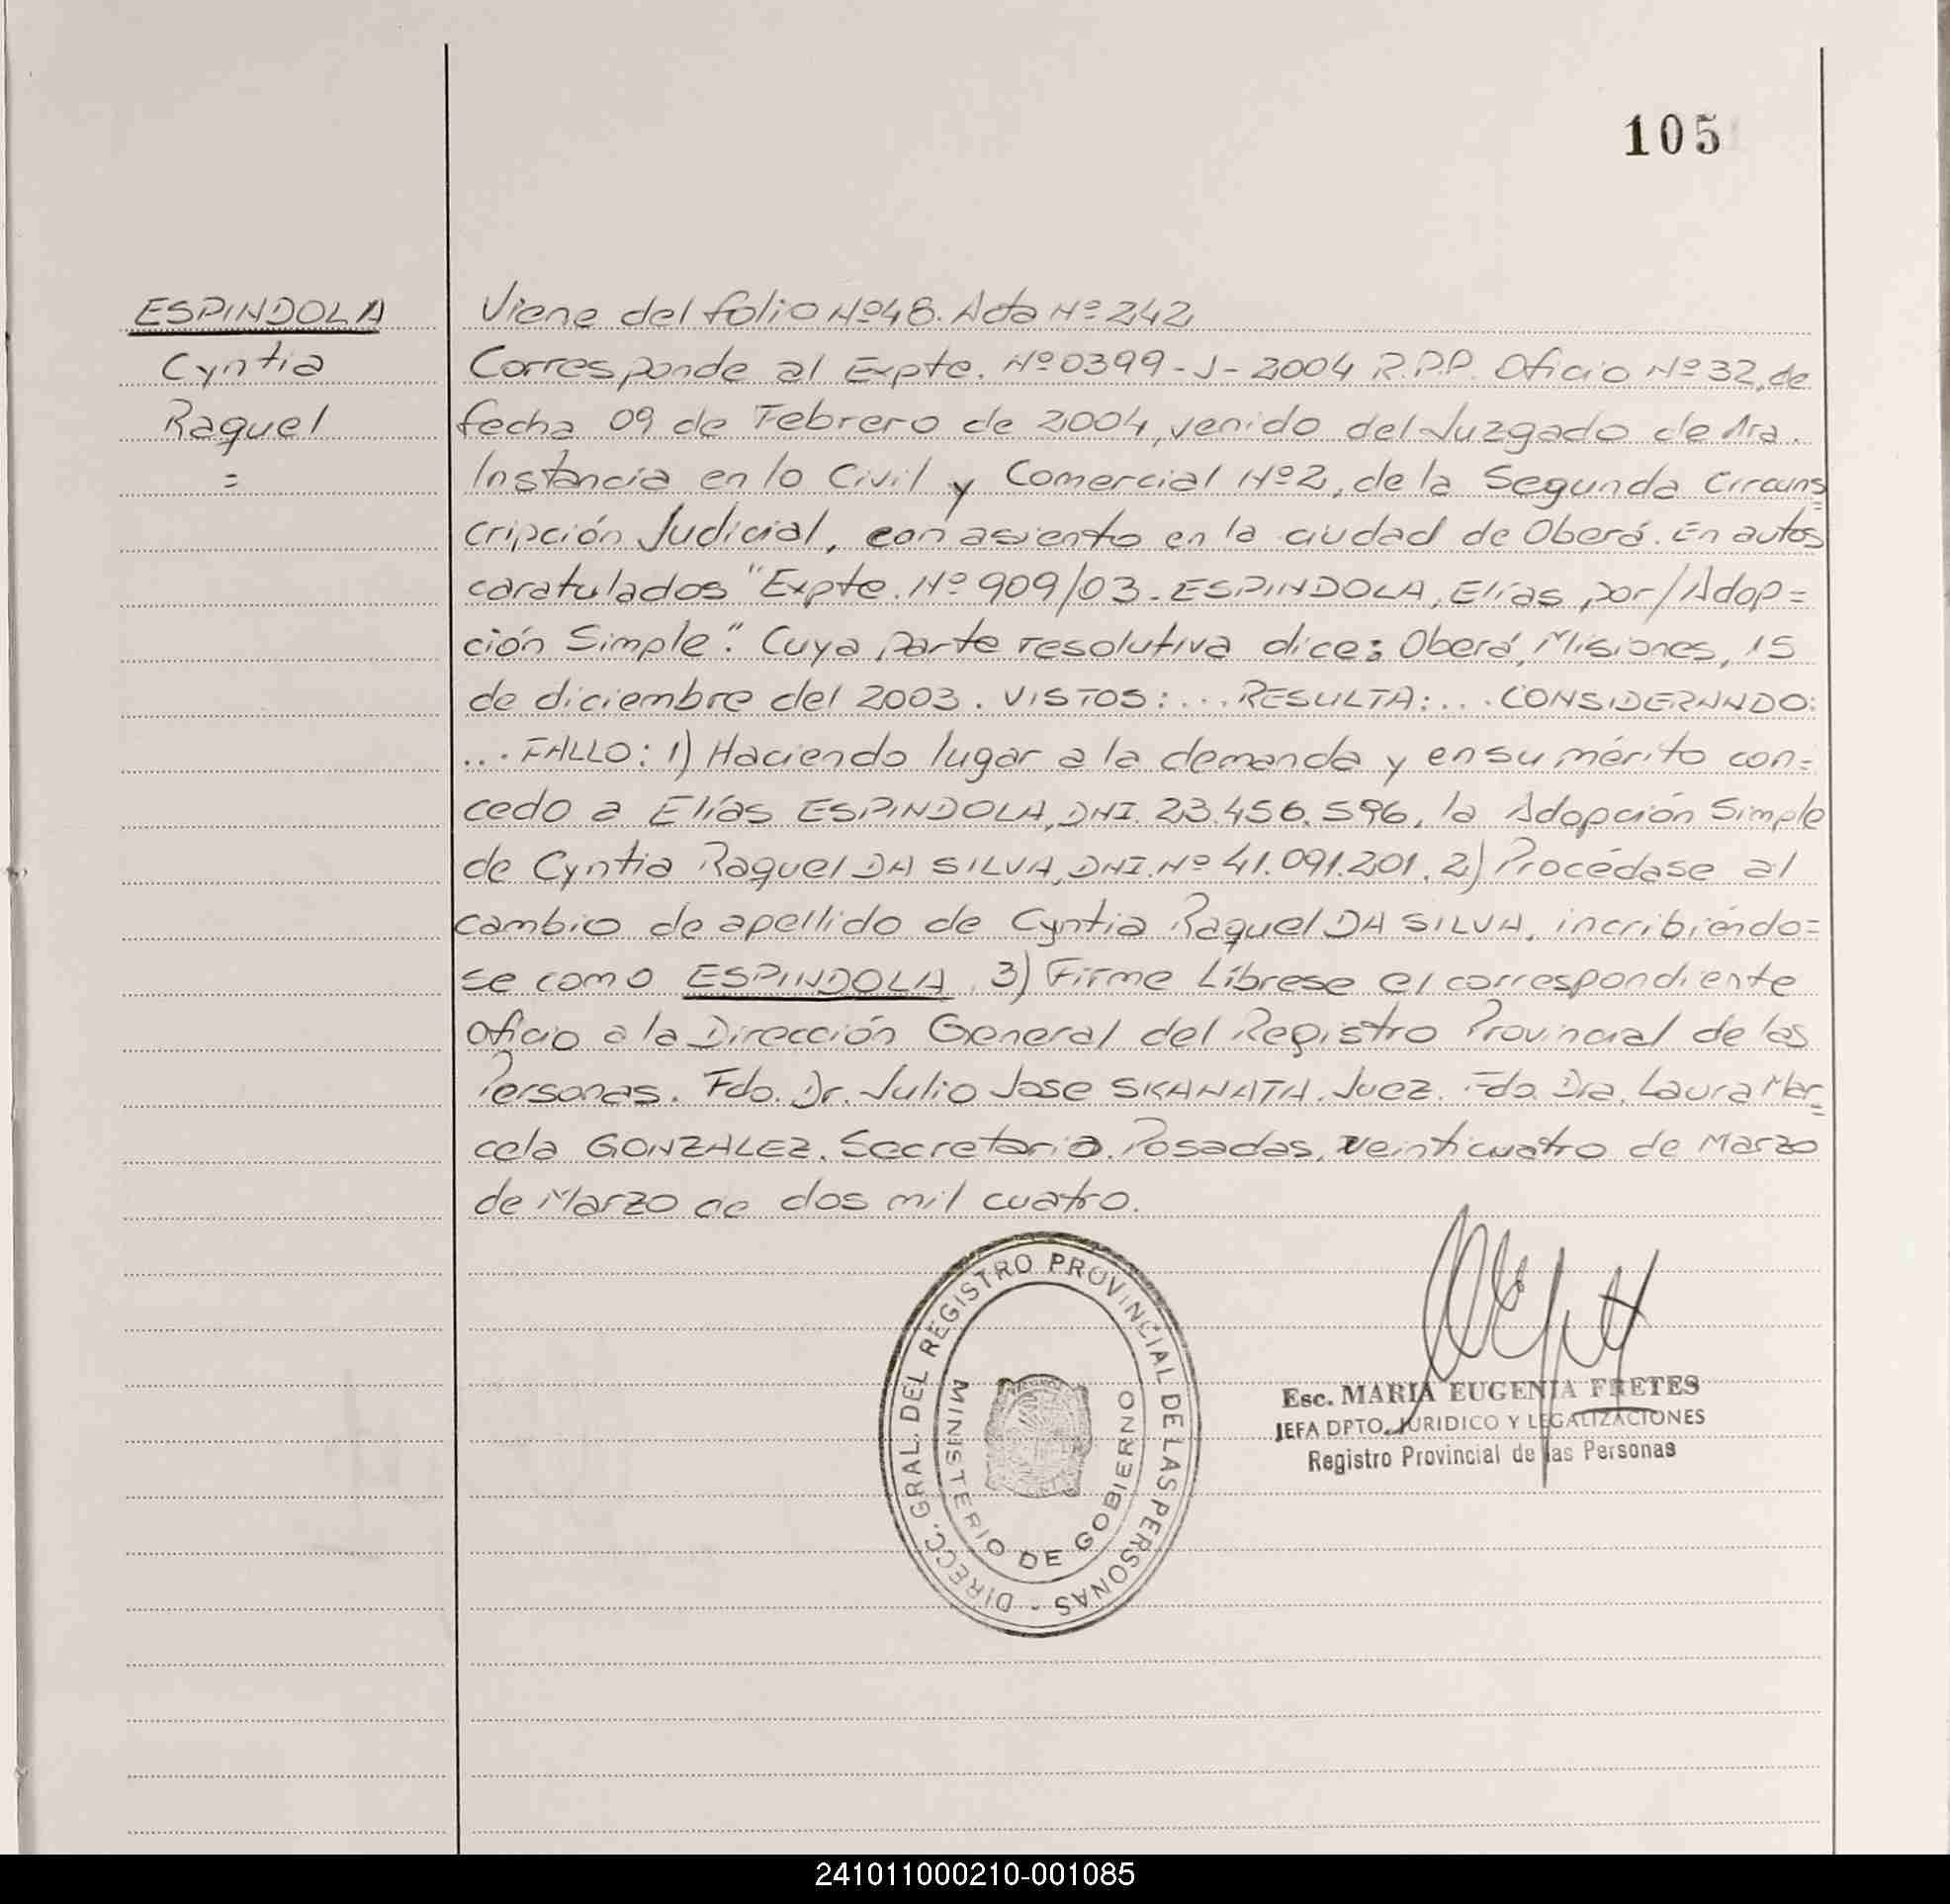 105
ESPINDOLA
Cyntia
Raquel
=
Viene del folio Nº48. Acta Nº 242
Corresponde al Expte. Nº 0399-J-2004 R.P.P. Oficio Nº 32, de
fecha 09 de Febrero de 2004, venido del Juzgado de 1ra.
Instancia en lo Civil y Comercial Nº2, de la Segunda Circuns=
cripción Judicial, con asiento en la ciudad de Oberá. En autos
caratulados "Expte. Nº 909/03. ESPINDOLA, Elías por/Adop=
ción Simple". Cuya parte resolutiva dice: Oberá, Misiones, 15
de diciembre del 2003. VISTOS: ... RESULTA: ... CONSIDERANDO:
... FALLO: 1) Haciendo lugar a la demanda y en su mérito con=
cedo a Elías ESPINDOLA, DNI. 23.456.596, la Adopción Simple
de Cyntia Raquel DA SILVA, DNI. Nº 41.091.201. 2) Procédase al
cambio de apellido de Cyntia Raquel DA SILVA, incribiéndo=
se como ESPINDOLA. 3) Firme Líbrese el correspondiente
Oficio a la Dirección General del Registro Provincial de las
Personas. Fdo. Dr. Julio Jose SKANATA. Juez. Fdo. Dra. Laura Mar=
cela GONZALEZ. Secretaria. Posadas, veinticuatro de Marzo
de Marzo de dos mil cuatro.
DIRECC. GRAL. DEL REGISTRO PROVINCIAL DE LAS PERSONAS -
MINISTERIO DE GOBIERNO
Esc. MARIA EUGENIA FRETES
JEFA DPTO. JURIDICO Y LEGALIZACIONES
Registro Provincial de las Personas
241011000210-001085